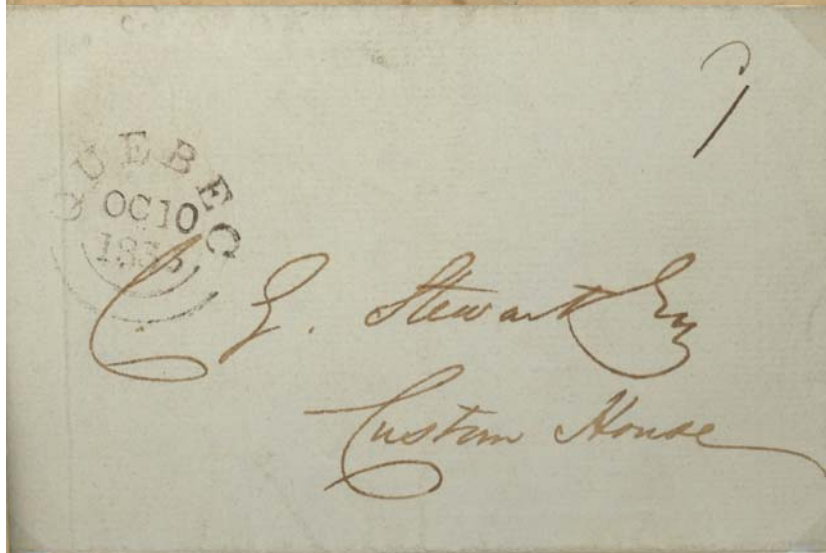 QUEBEC
OC 10
C G. Stewart Esq
Custom House